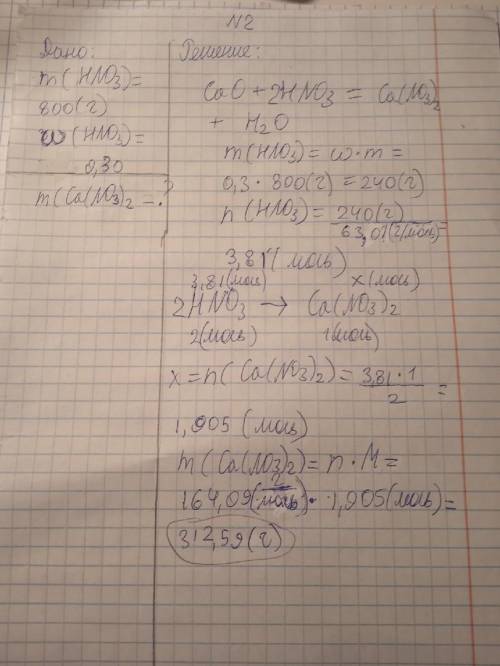 N2
Дано:
m(HNO3)=
800(г)
ω(HNO3)=
0,30
m(Ca(NO3)2 - ?
Решение:
CaO + 2HNO3 = Ca(NO3)2
+ H2O
m(HNO3) = ω·m =
0,3 · 800(г) = 240(г)
n(HNO3) = 240(г)
63,01(г/моль) =
3,81(моль)
3,81(моль) x(моль)
2HNO3 → Ca(NO3)2
2(моль) 1(моль)
x = n(Ca(NO3)2) = 3,81·1
2 =
1,905 (моль)
m(Ca(NO3)2) = n·M =
164,09(г/моль) · 1,905(моль) =
312,59(г)